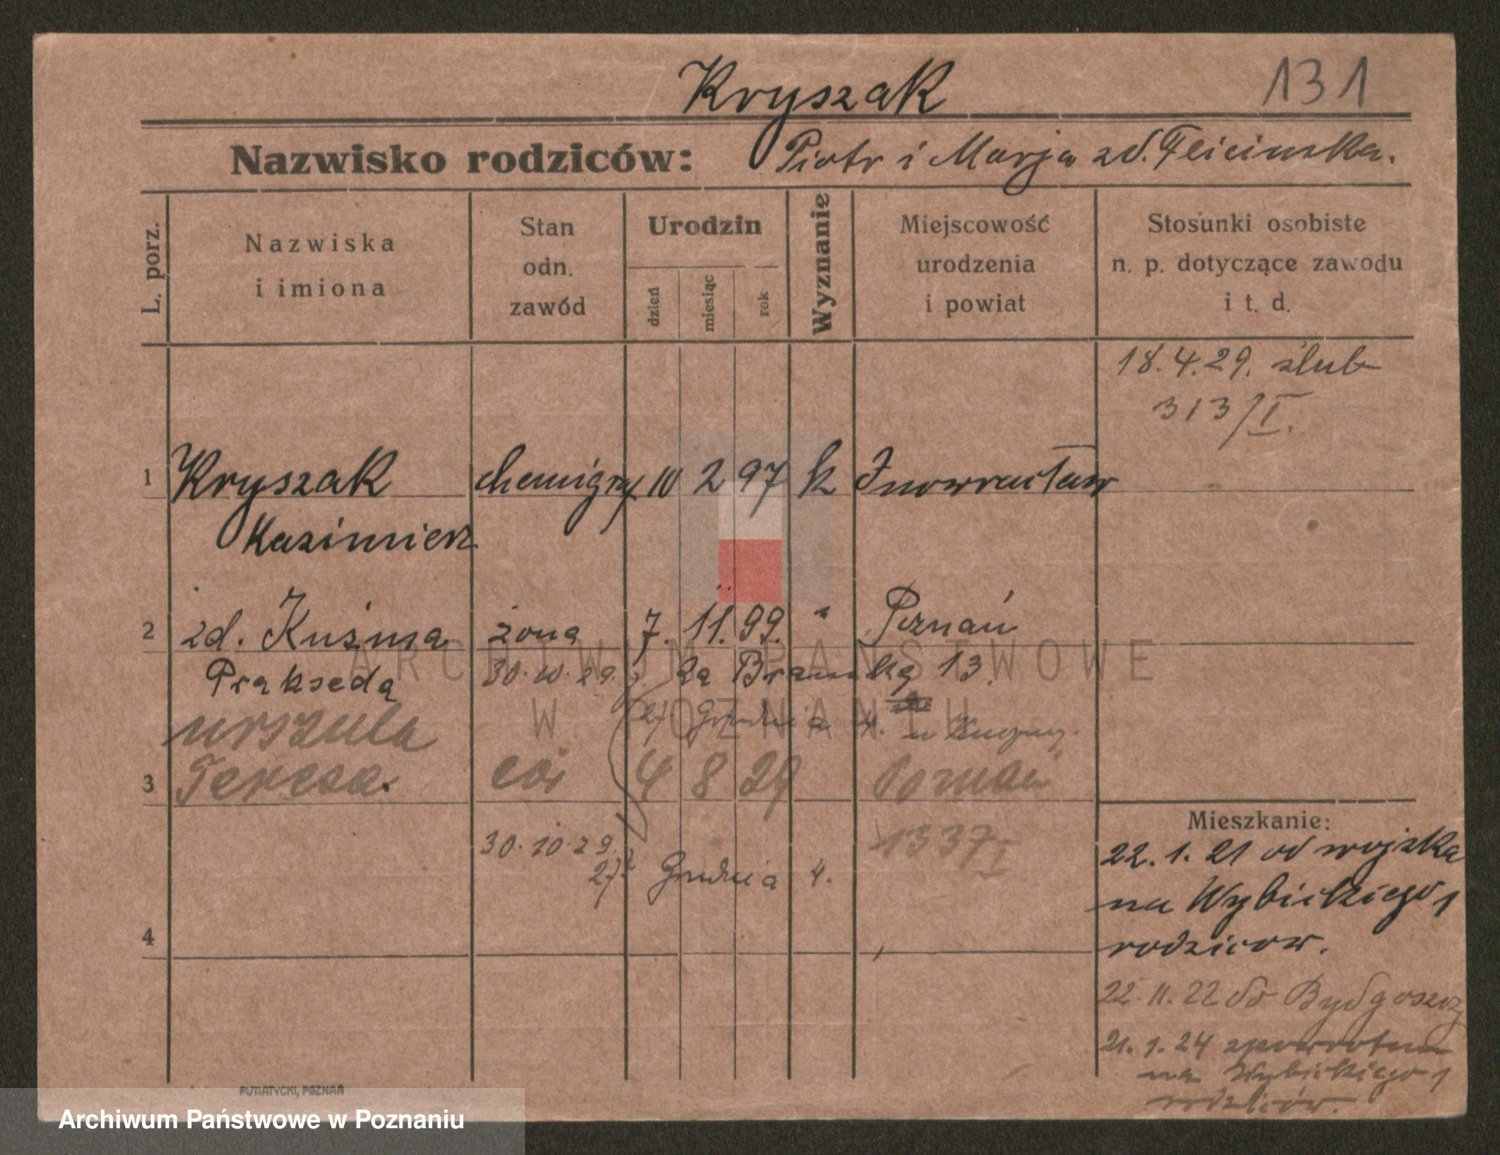 Kryszak 131
Nazwisko rodziców: Piotr i Marja zd.
L. porz.
Nazwiska
i imiona
Stan
odn.
zawód
Urodzin
dzień
miesiąc
rok
Wyznanie
Miejscowość
urodzenia
i powiat
Stosunki osobiste
n. p. dotyczące zawodu
i t. d.
18.4.29. ślub
313/I.
1 Kryszak chemigraf 10 2 97 k Inowrocław
Kazimierz
2 zd. Kuśma żona 7. 11. 99. " Poznań
Prakseda 30.10.29. za Bramką 13.
Urszula 27 Grudnia 4.
3 Teresa. cór 4 8 29 Poznań
1337/I
30.10.29.
27 Grudnia 4.
4
Mieszkanie:
22.1.21 od wojska
na Wybickiego 1
rodziców.
22.11.22 do Bydgoszczy
21.1.24 zpowrotem
na Wybickiego 1
rodziców.
PUTIATYCKI, POZNAŃ
ARCHIWUM PAŃSTWOWE
W POZNANIU
Archiwum Państwowe w Poznaniu